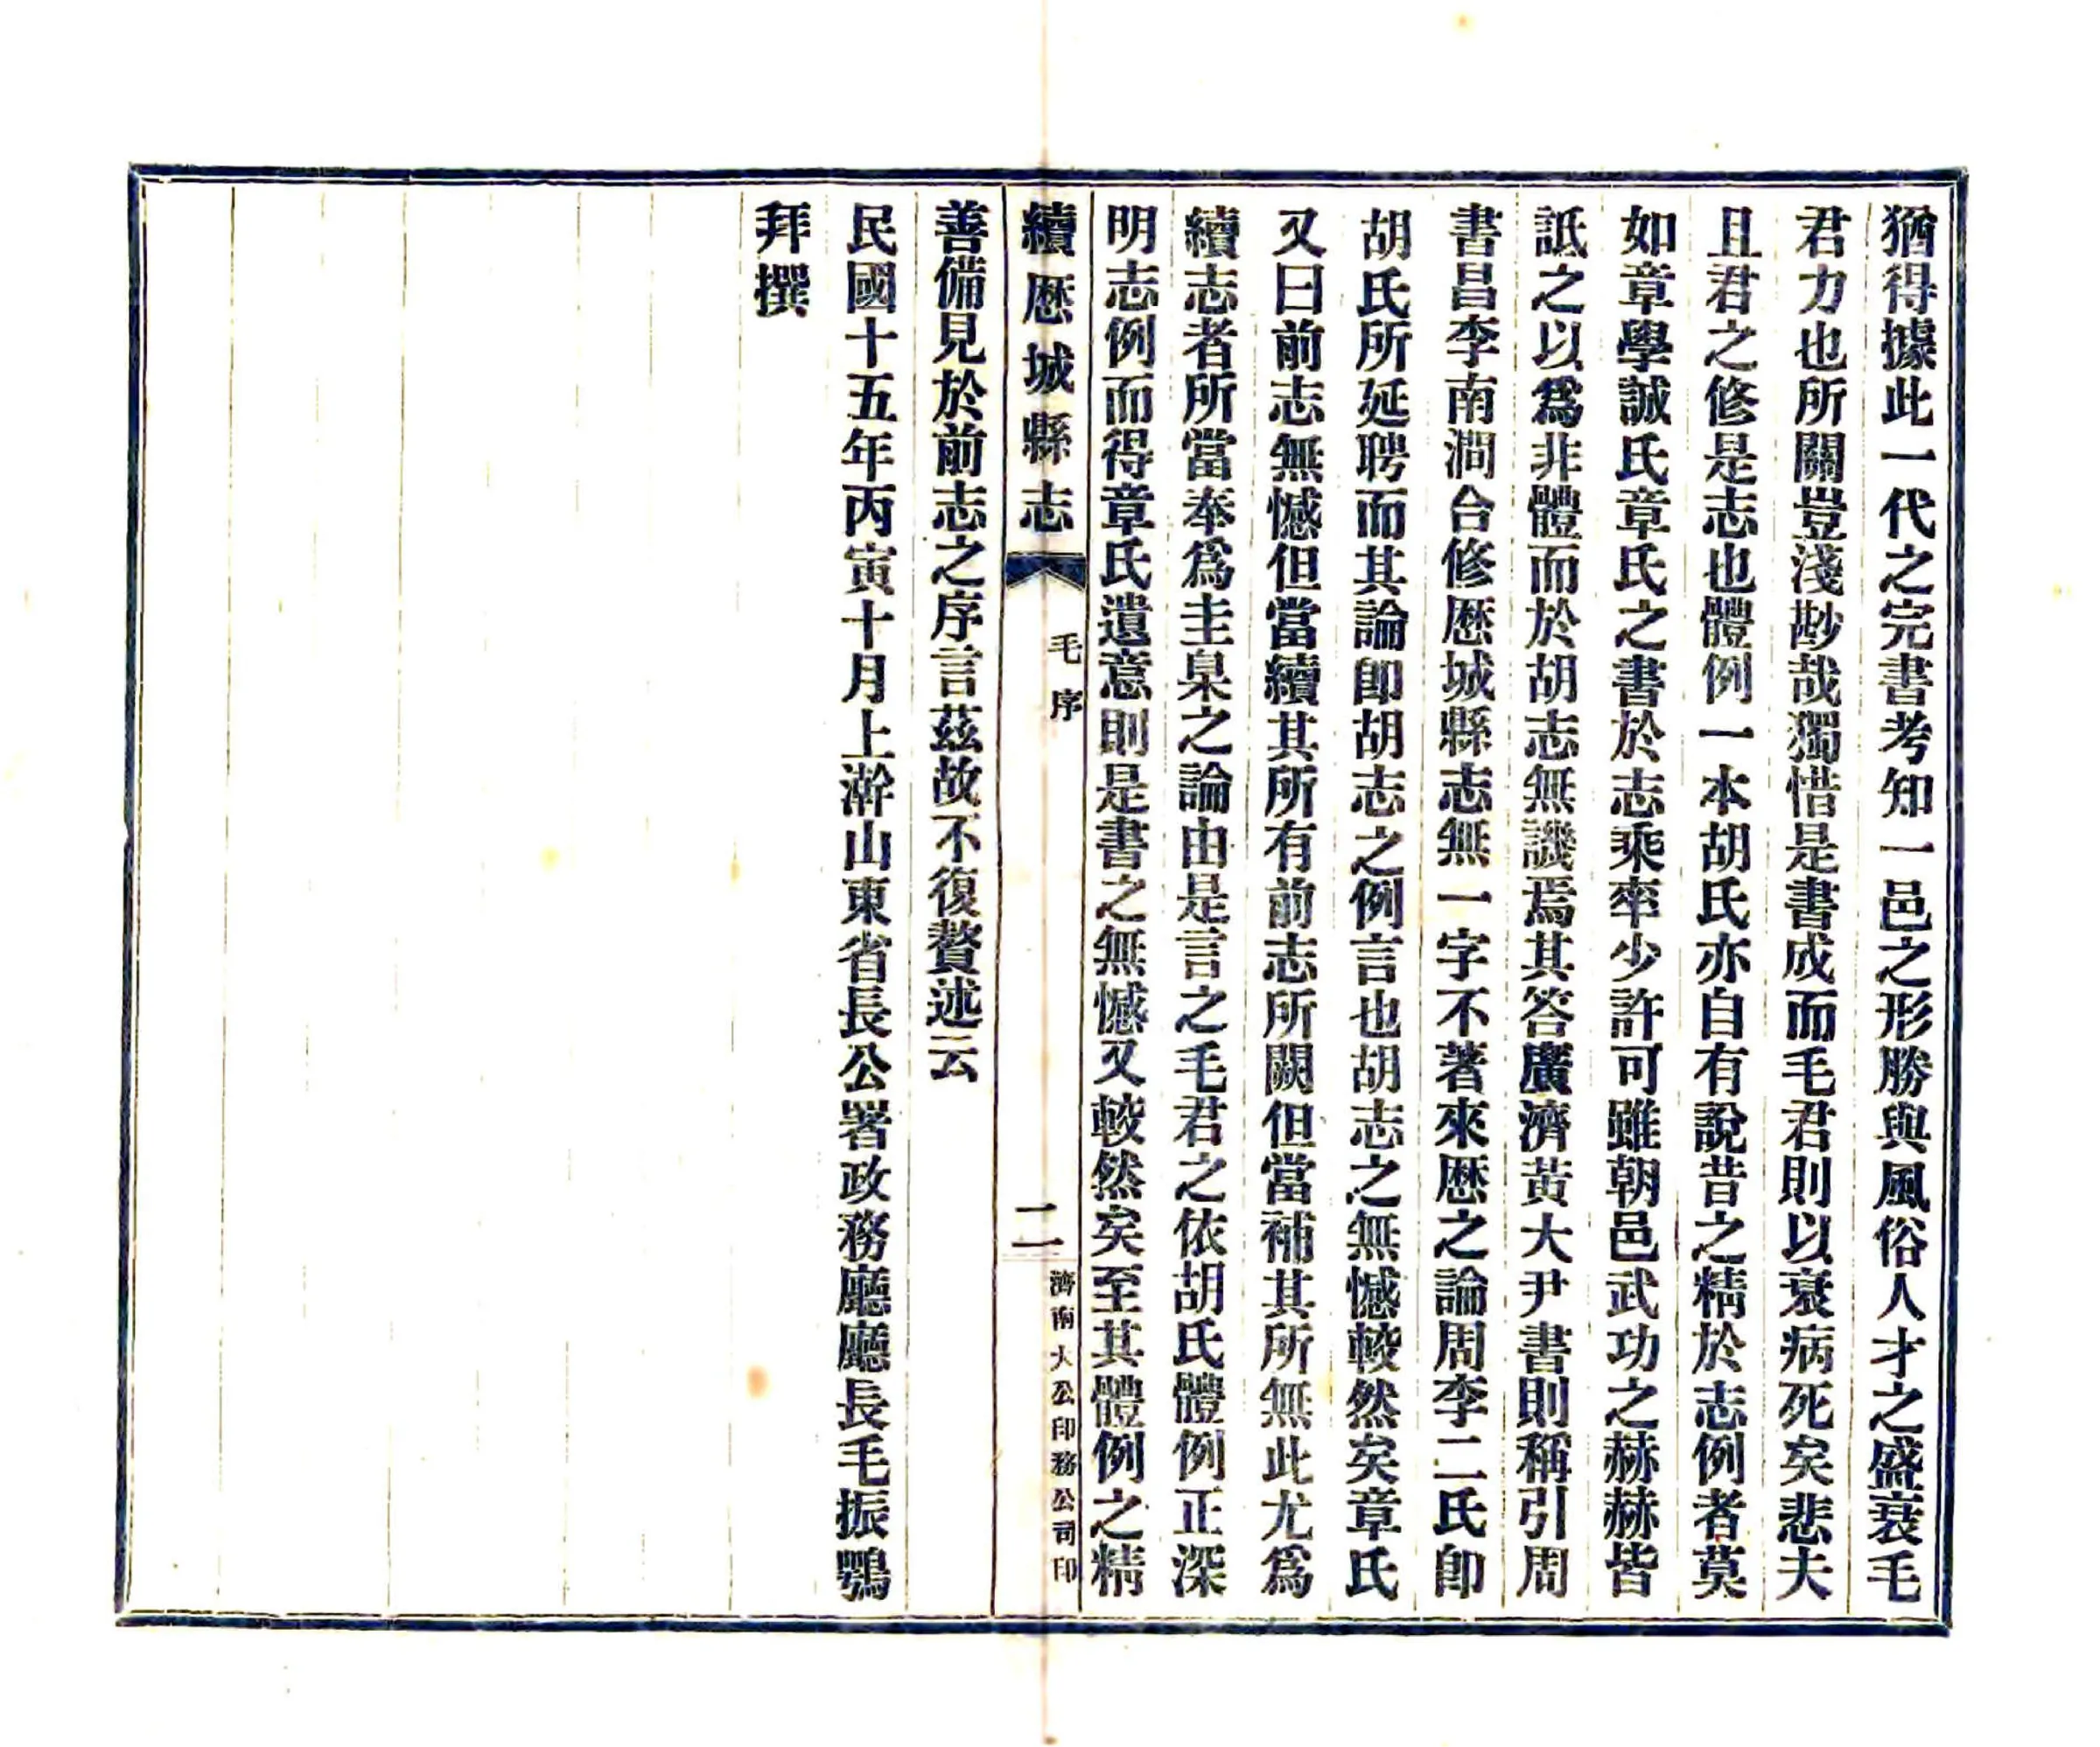 猶得據此一代之完書考知一邑之形勝與風俗人才之盛衰毛
君力也所關豈淺尠哉獨惜是書成而毛君則以衰病死矣悲夫
且君之修是志也體例一本胡氏亦自有說昔之精於志例者莫
如章學誠氏章氏之書於志乘率少許可雖朝邑武功之赫赫皆
詆之以爲非體而於胡志無譏焉其答廣濟黃大尹書則稱引周
書昌李南澗合修歷城縣志無一字不著來歷之論周李二氏卽
胡氏所延聘而其論卽胡志之例言也胡志之無憾較然矣章氏
又曰前志無憾但當續其所有前志所闕但當補其所無此尤爲
續志者所當奉爲圭臬之論由是言之毛君之依胡氏體例正深
明志例而得章氏遺意則是書之無憾又較然矣至其體例之精
續歷城縣志
毛序
二
濟南大公印務公司印
善備見於前志之序言茲故不復贅述云
民國十五年丙寅十月上澣山東省長公署政務廳廳長毛振鶚
拜撰